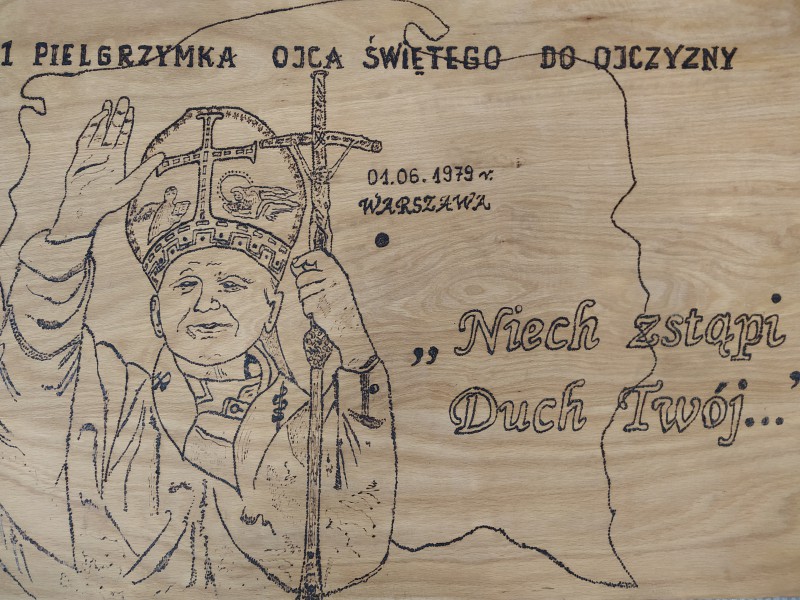 1 PIELGRZYMKA OJCA ŚWIĘTEGO DO OJCZYZNY
01.06.1979 r.
WARSZAWA
„Niech zstąpi
Duch Twój...”